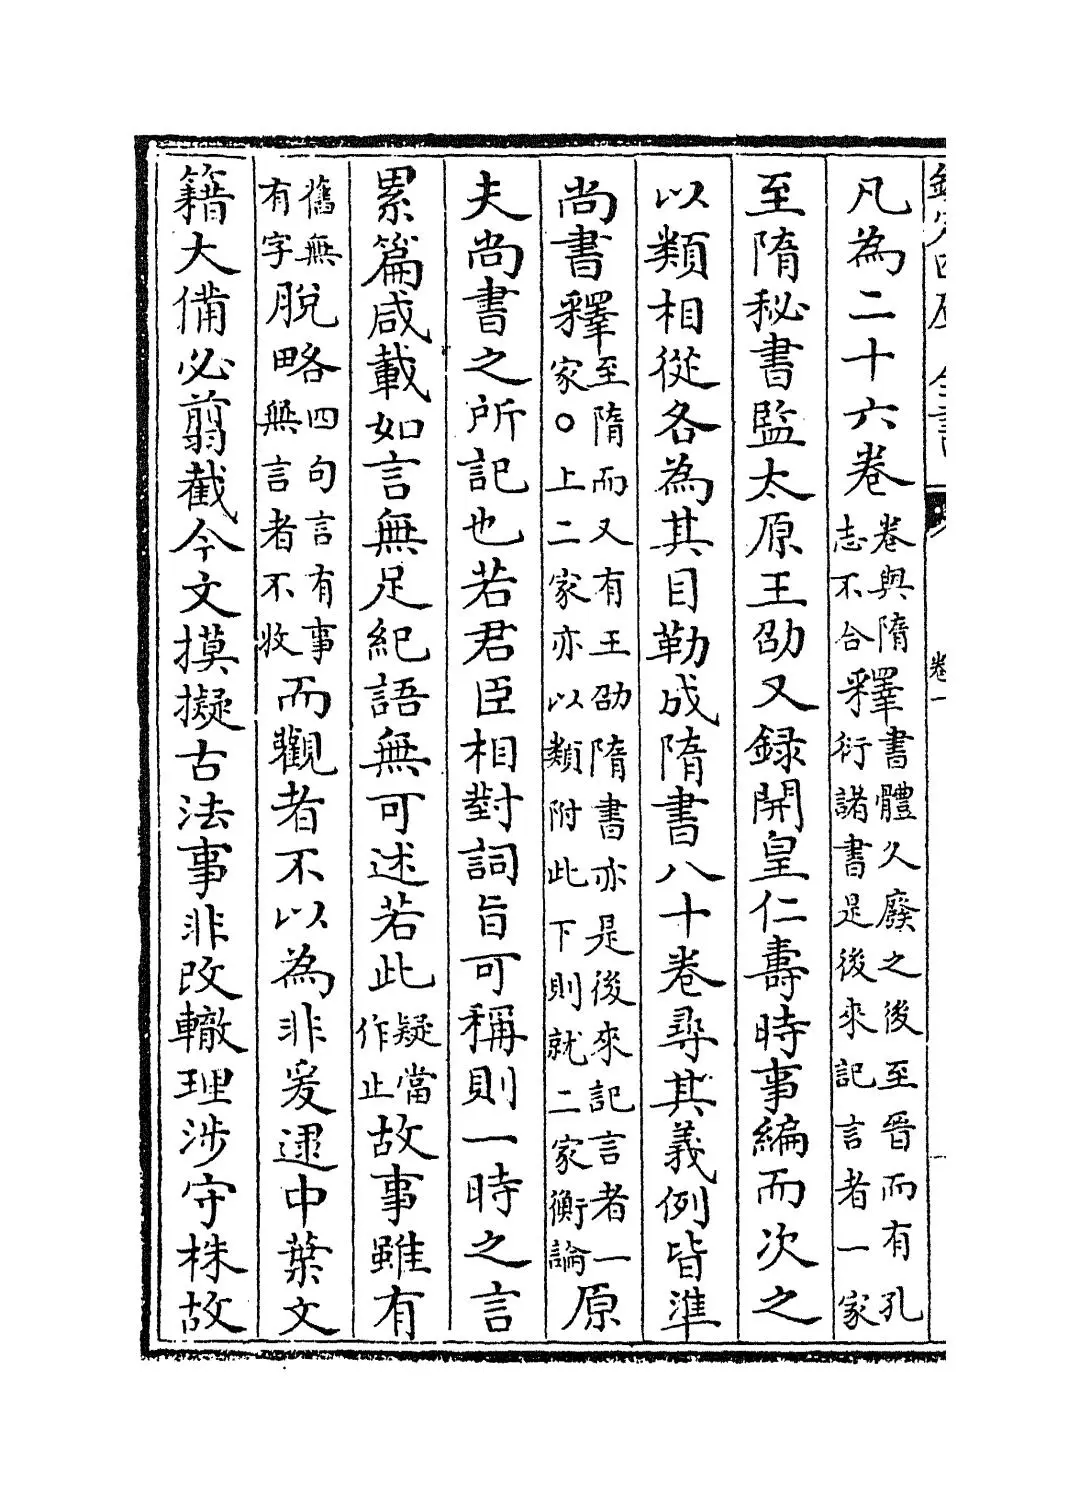 卷一
凡為二十六卷卷與隋志不合釋書體久廢之後至晉而有孔衍諸書是後來記言者一家
至隋秘書監太原王劭又録開皇仁壽時事編而次之
以類相從各為其目勒成隋書八十卷尋其義例皆準
尚書釋至隋而又有王劭隋書亦是後來記言者一家○上二家亦以類附此下則就二家衡論原
夫尚書之所記也若君臣相對詞旨可稱則一時之言
累篇咸載如言無足紀語無可述若此疑當作止故事雖有
舊無有字脫略四句言有事無言者不收而觀者不以為非爰逮中葉文
籍大備必翦截今文摸擬古法事非改轍理涉守株故